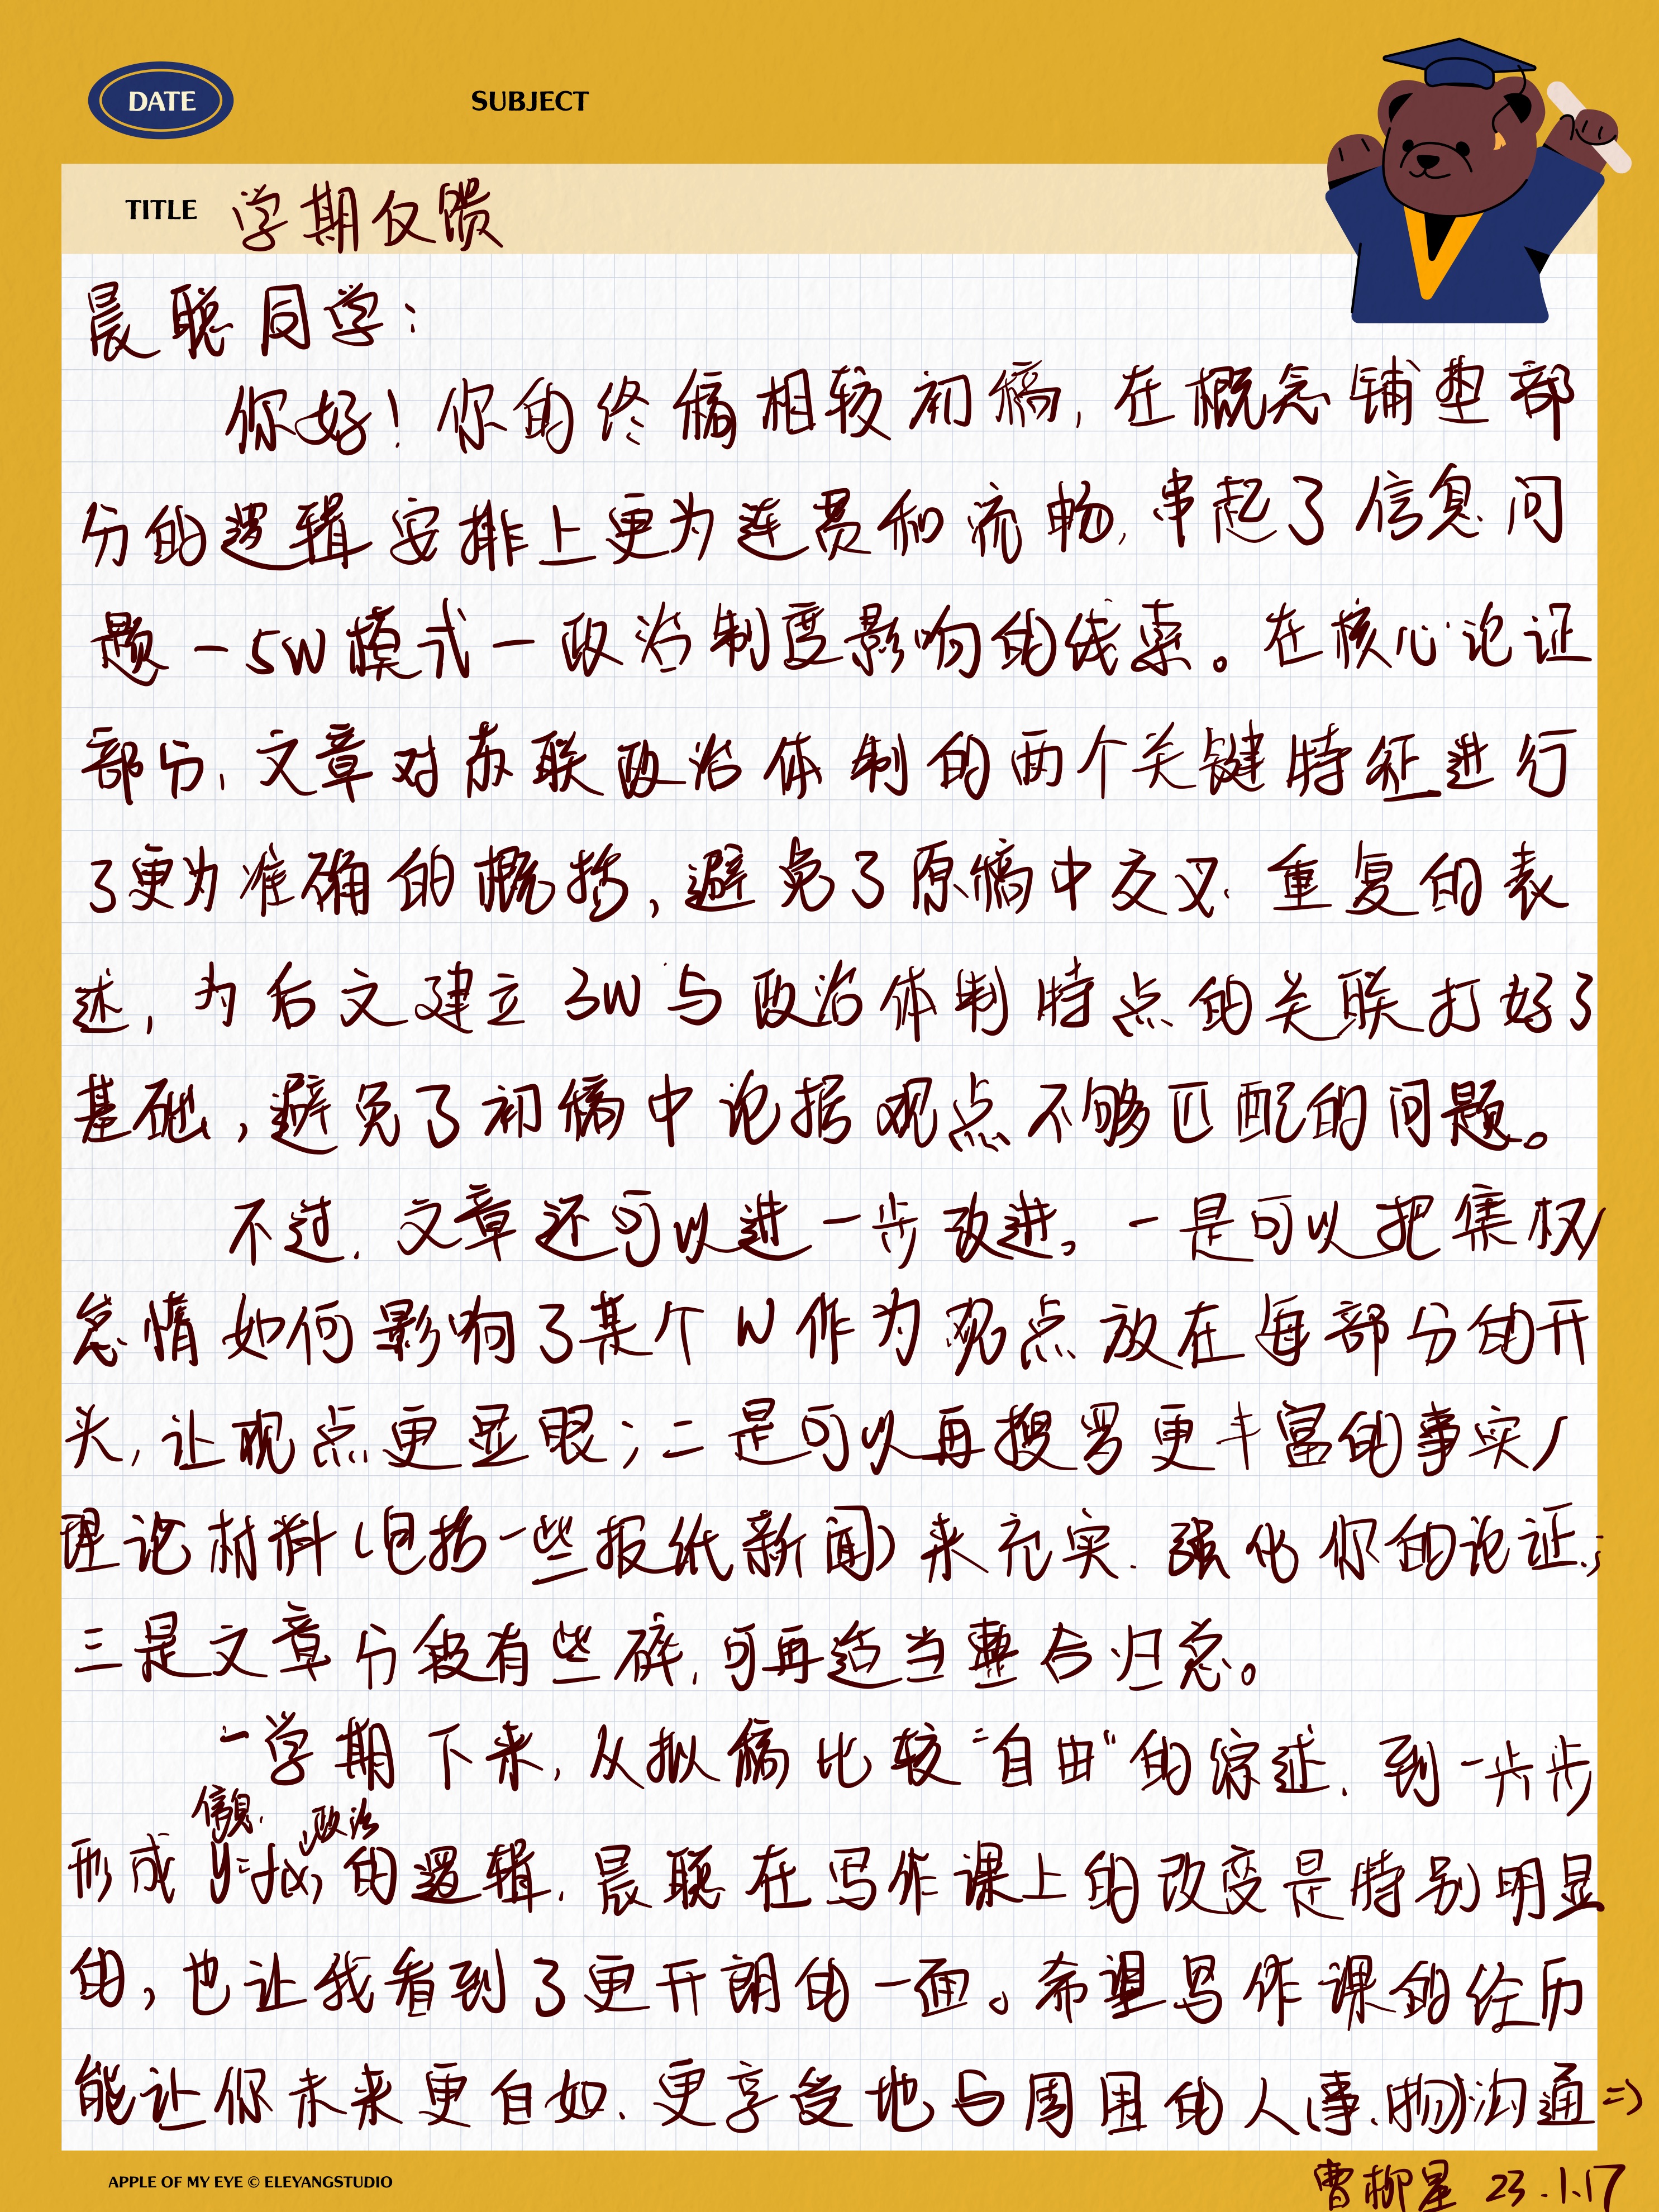 DATE
SUBJECT
TITLE 学期反馈
晨聪同学：
你好！你的终稿相较初稿，在概念铺垫部
分的逻辑安排上更为连贯和流畅，串起了信息问
题－5W模式－政治制度影响的线索。在核心论证
部分，文章对苏联政治体制的两个关键特征进行
了更为准确的概括，避免了原稿中交叉、重复的表
述，为后文建立3W与政治体制特点的关联打好了
基础，避免了初稿中论据观点不够匹配的问题。
不过，文章还可以进一步改进。一是可以把集权/
怠惰如何影响了某个W作为观点放在每部分的开
头，让观点更显眼；二是可以再搜罗更丰富的事实/
理论材料（包括一些报纸新闻）来充实、强化你的论证；
三是文章分段有些碎，可再适当整合归总。
一学期下来，从拟稿比较“自由”的综述，到一步步
信息 政治
形成y=f(x)的逻辑，晨聪在写作课上的改变是特别明显
的，也让我看到了更开朗的一面。希望写作课的经历
能让你未来更自如、更享受地与周围的人(事、物)沟通=)
曹柳星 23.1.17
APPLE OF MY EYE © ELEYANGSTUDIO